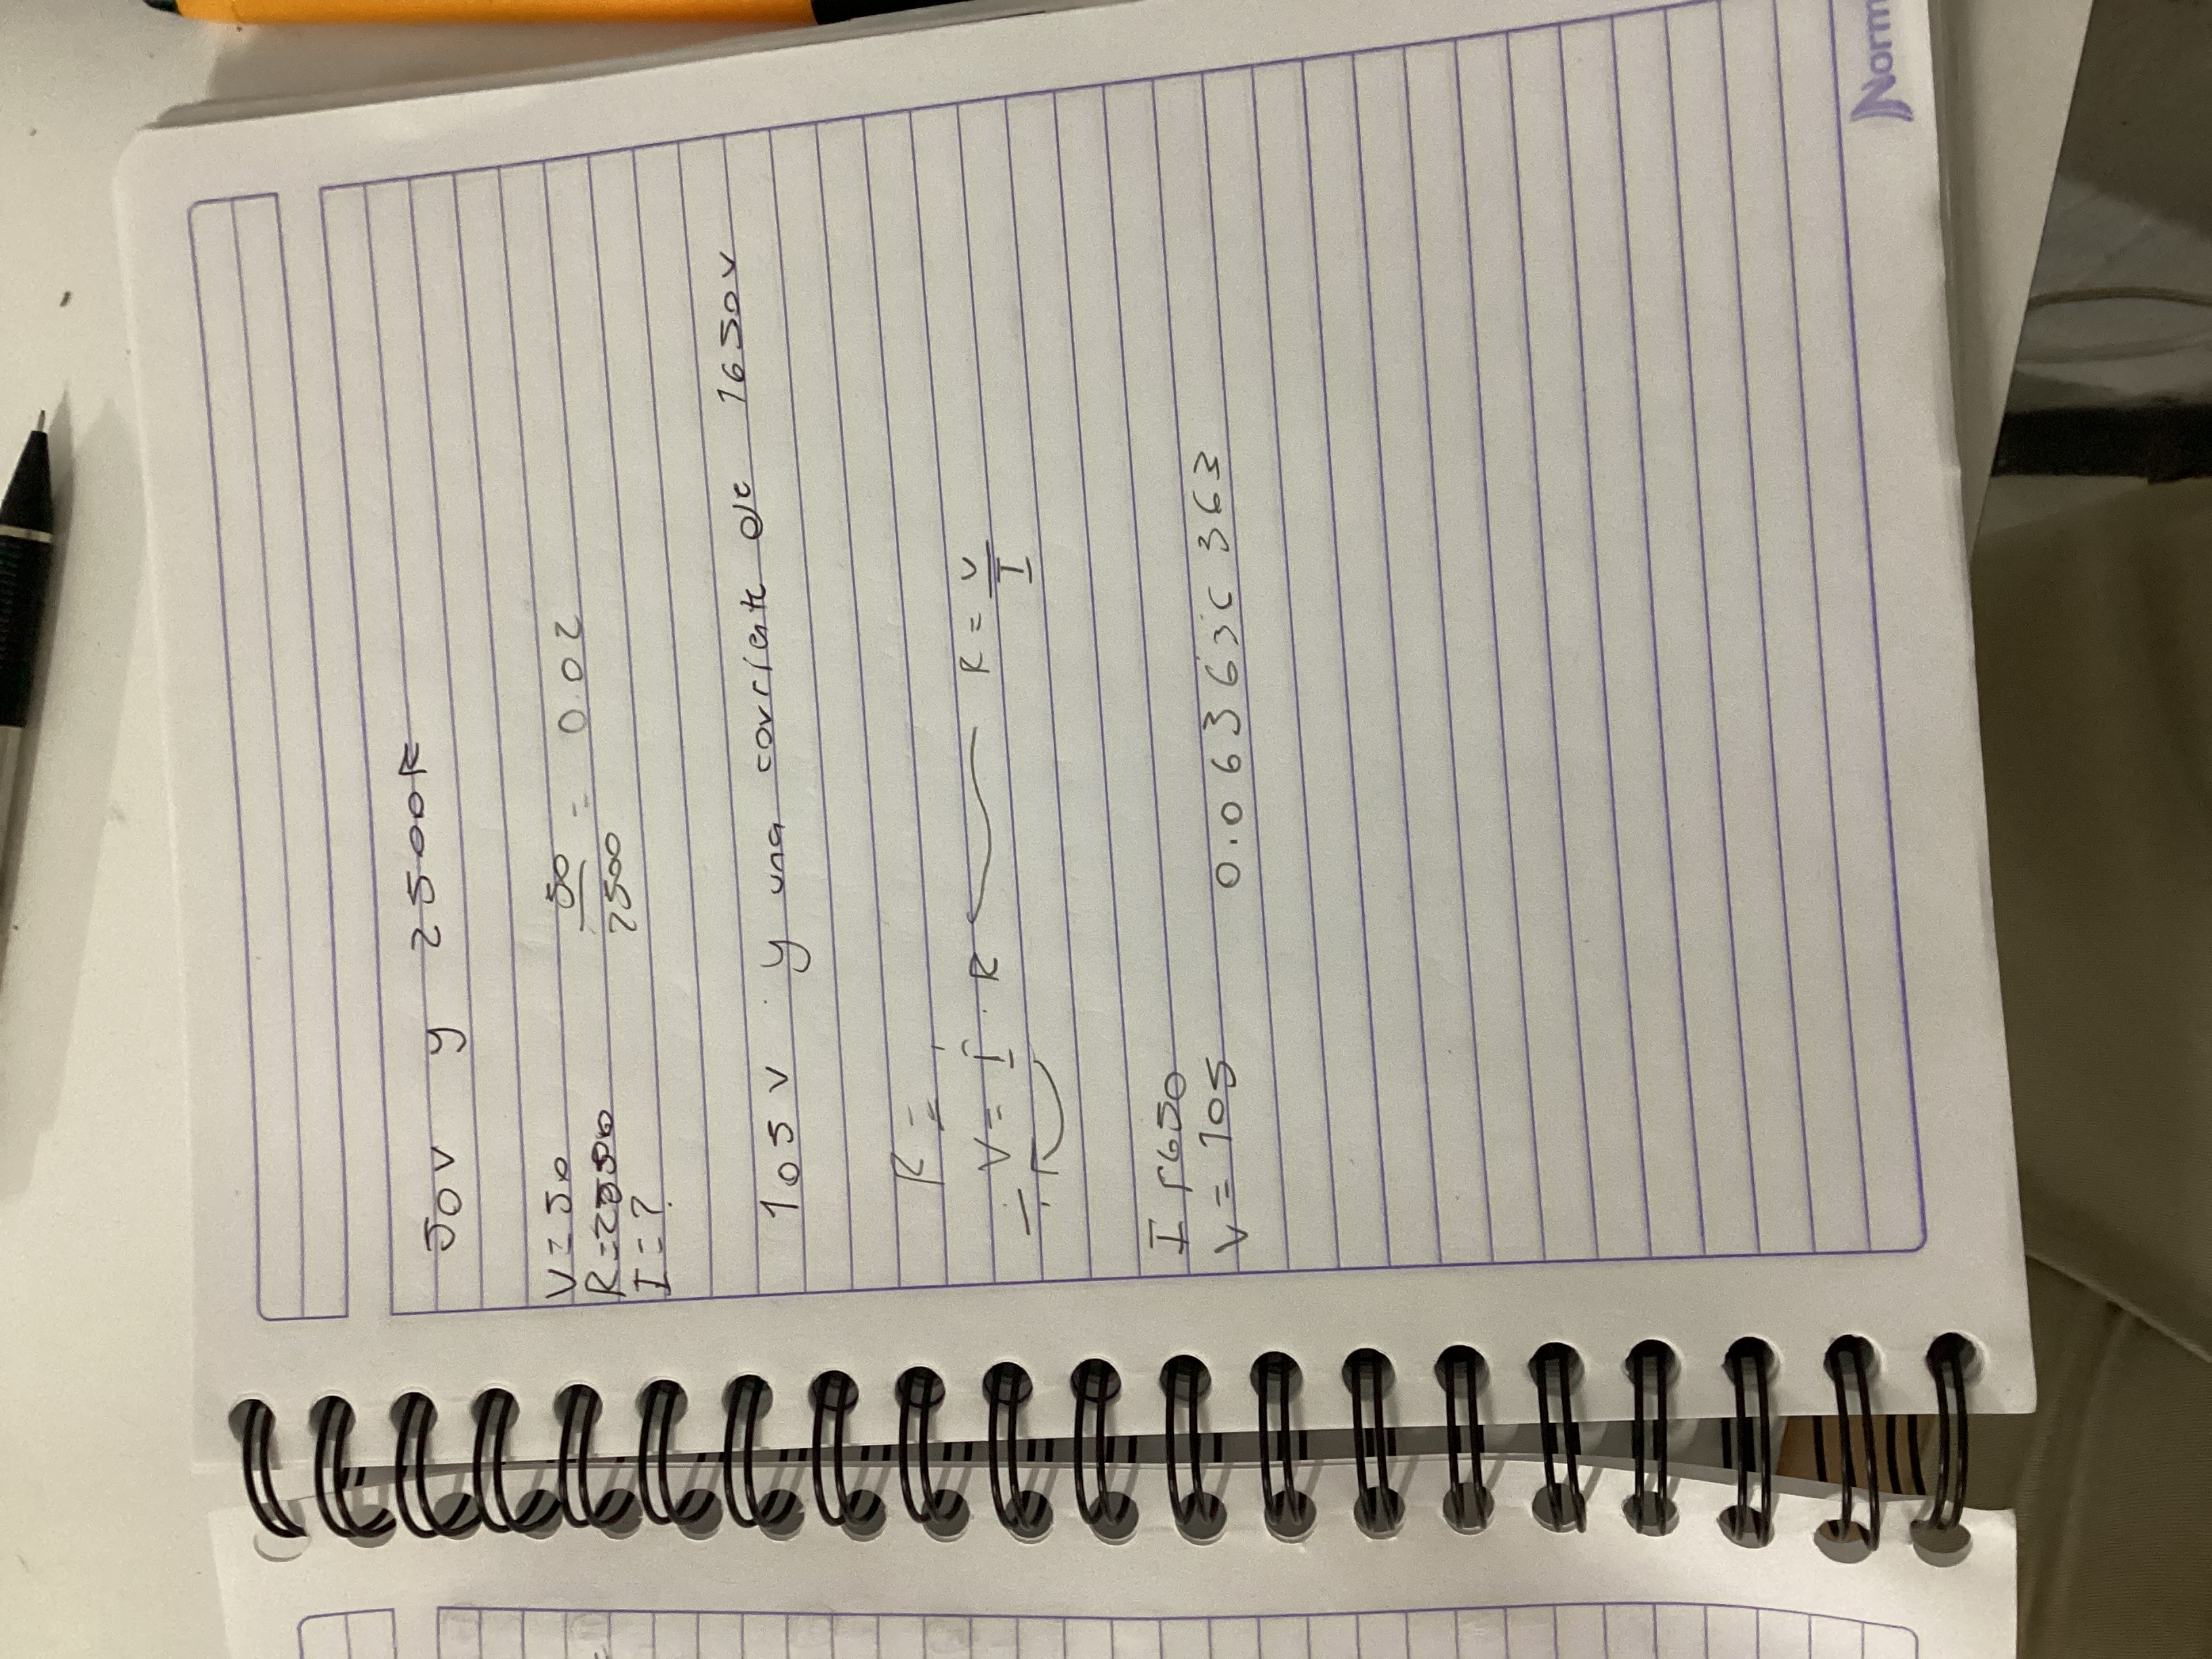 50v y 2500R
V=50 50
R=2500 2500 = 0.02
I=?
105v y una corriente de 1650v
R=
V= I . R R= V
÷ R I
I 1650
V=105 0.0636363636 3
Norm